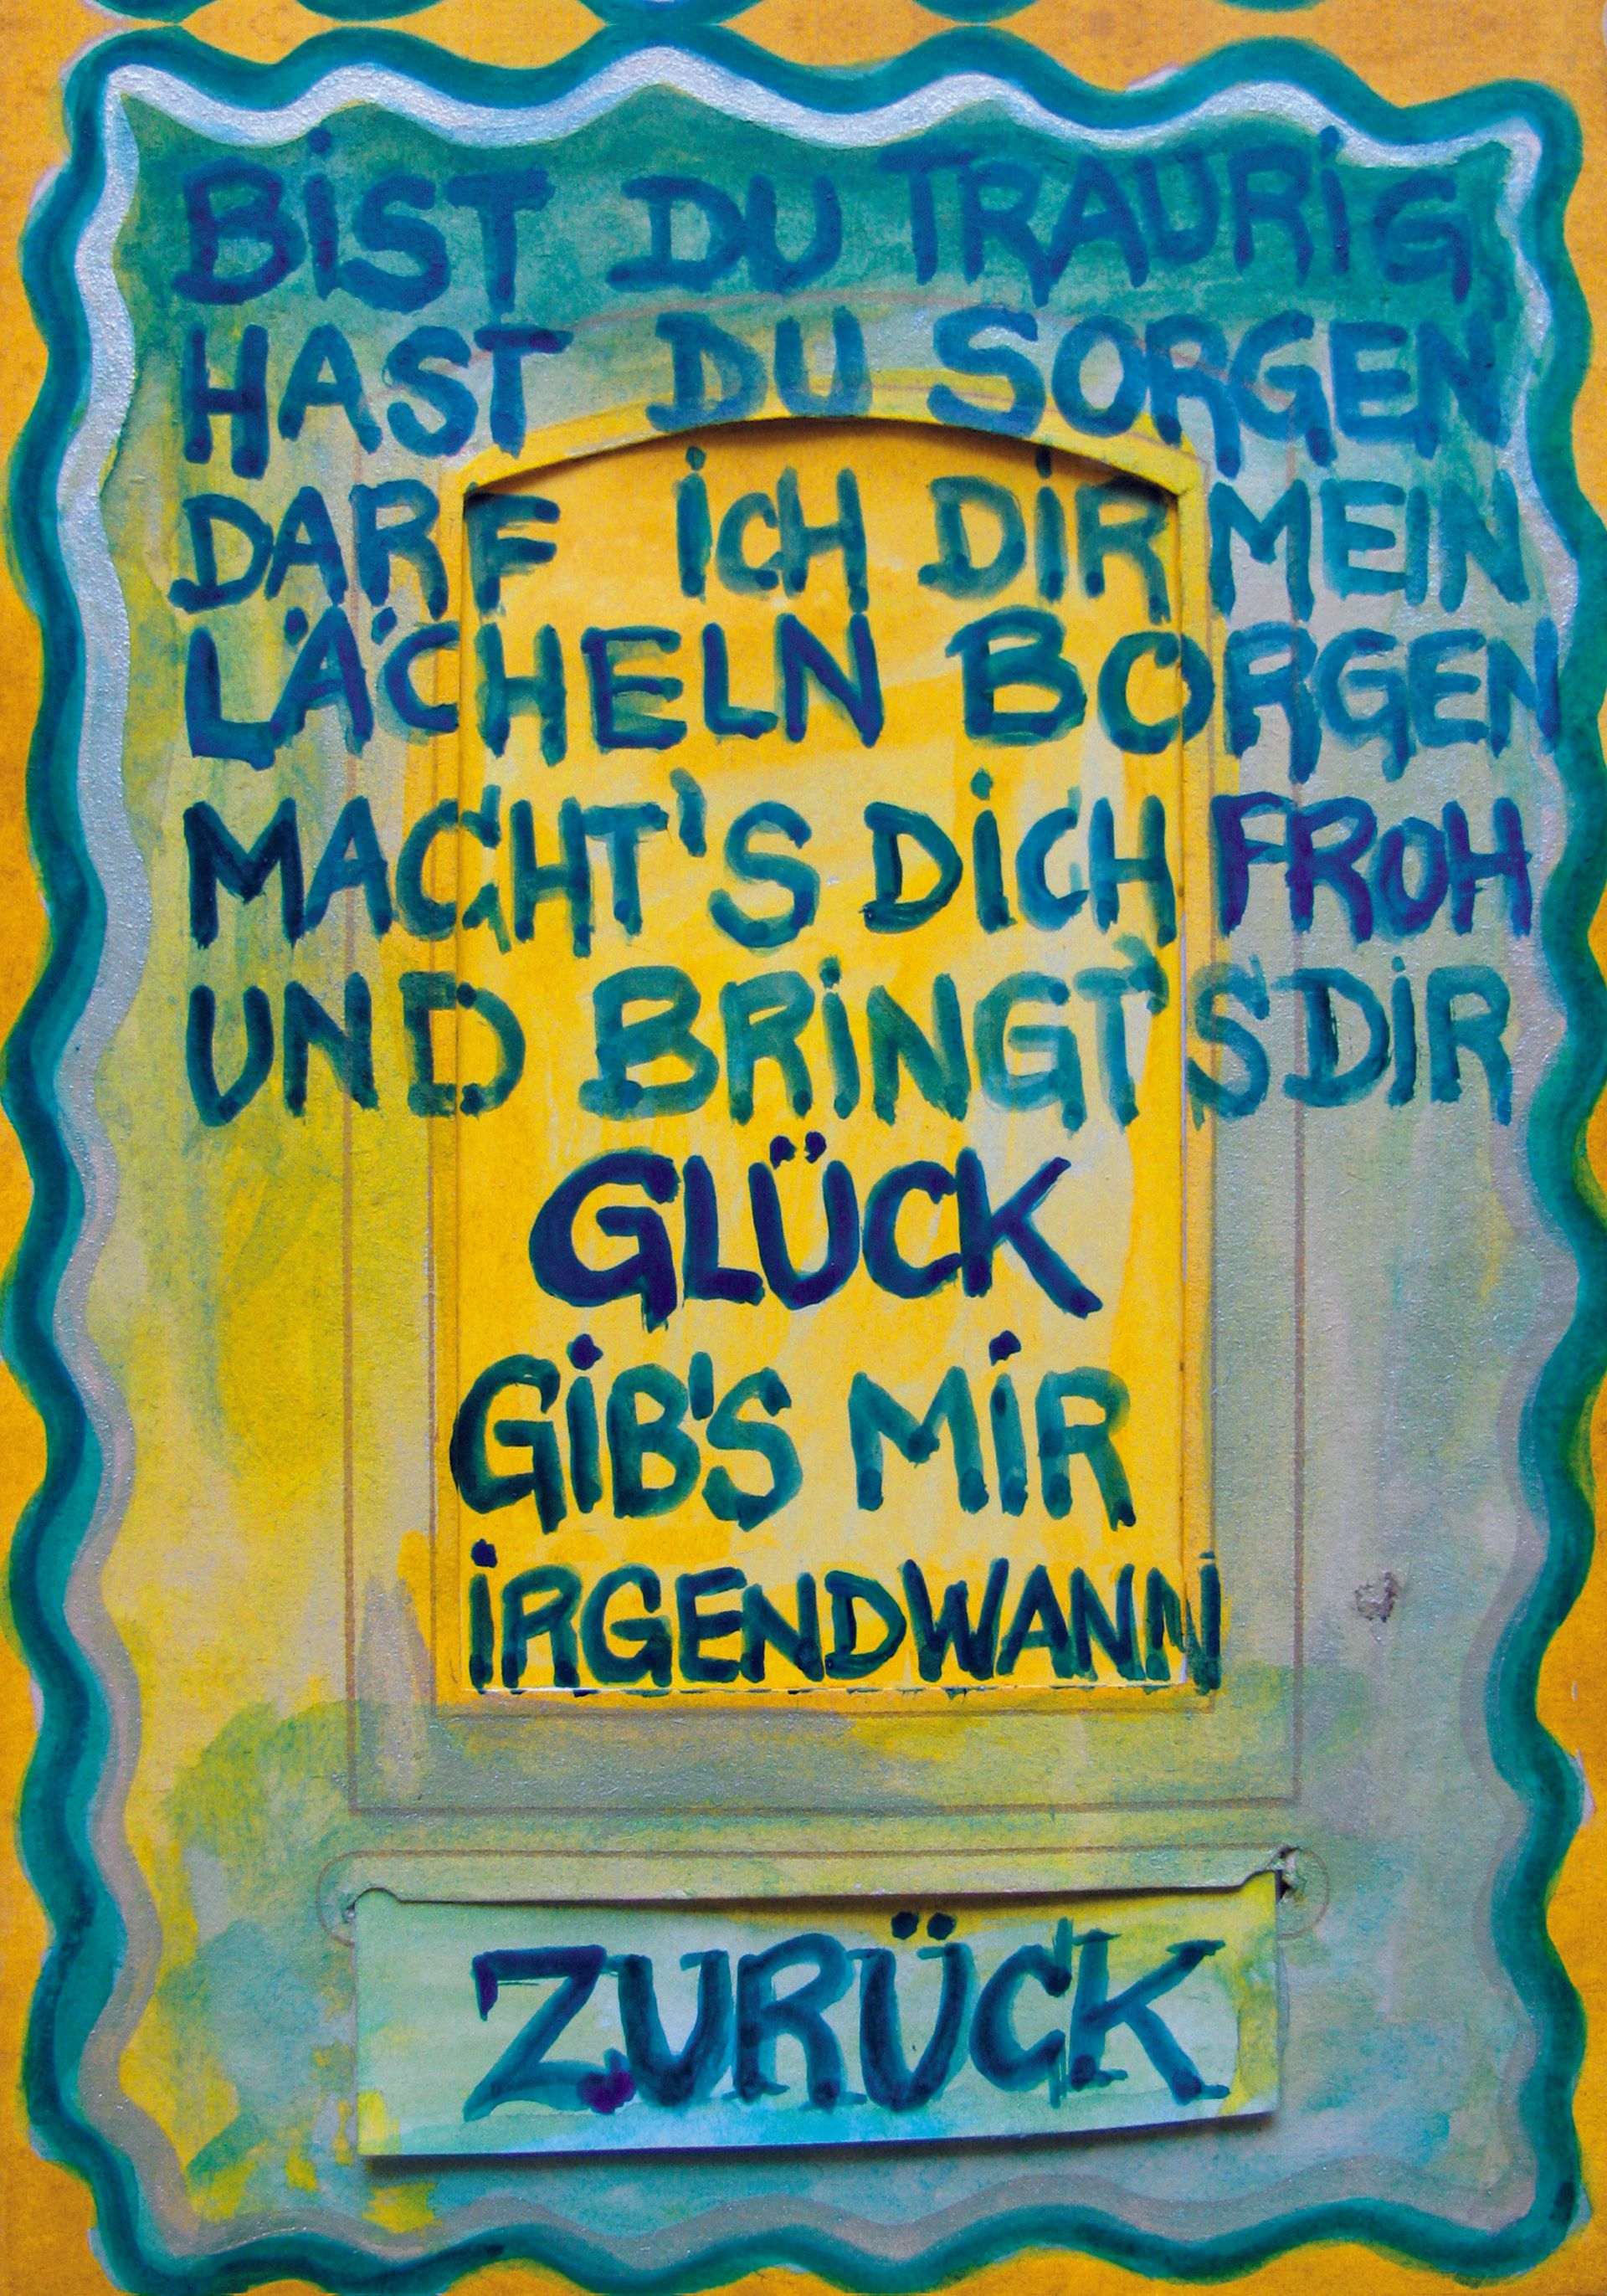 BIST DU TRAURIG,
HAST DU SORGEN
DARF ICH DIR MEIN
LÄCHELN BORGEN
MACHT'S DICH FROH
UND BRINGT'S DIR
GLÜCK
GIB'S MIR
IRGENDWANN
ZURÜCK